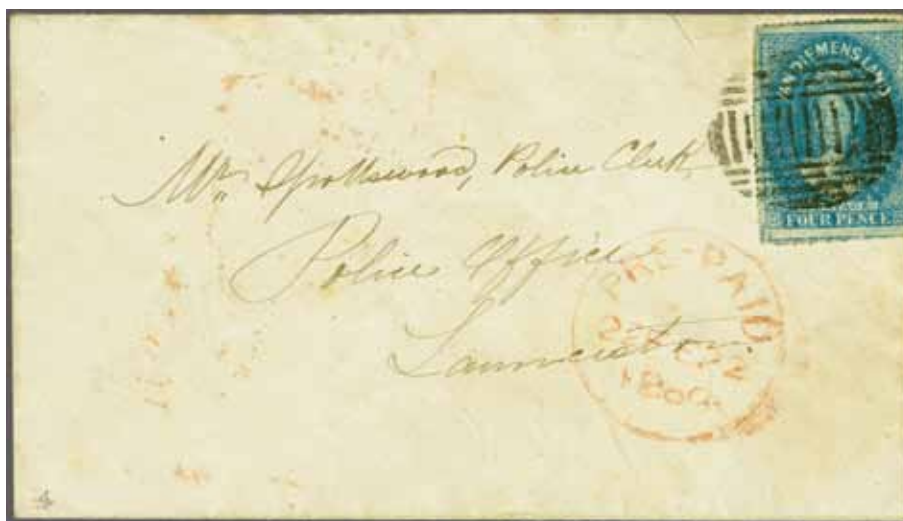 VAN DIEMENS LAND
FOUR PENCE
Mr Spottswood, Police Clerk
Police Office
Launceston
PRE-PAID